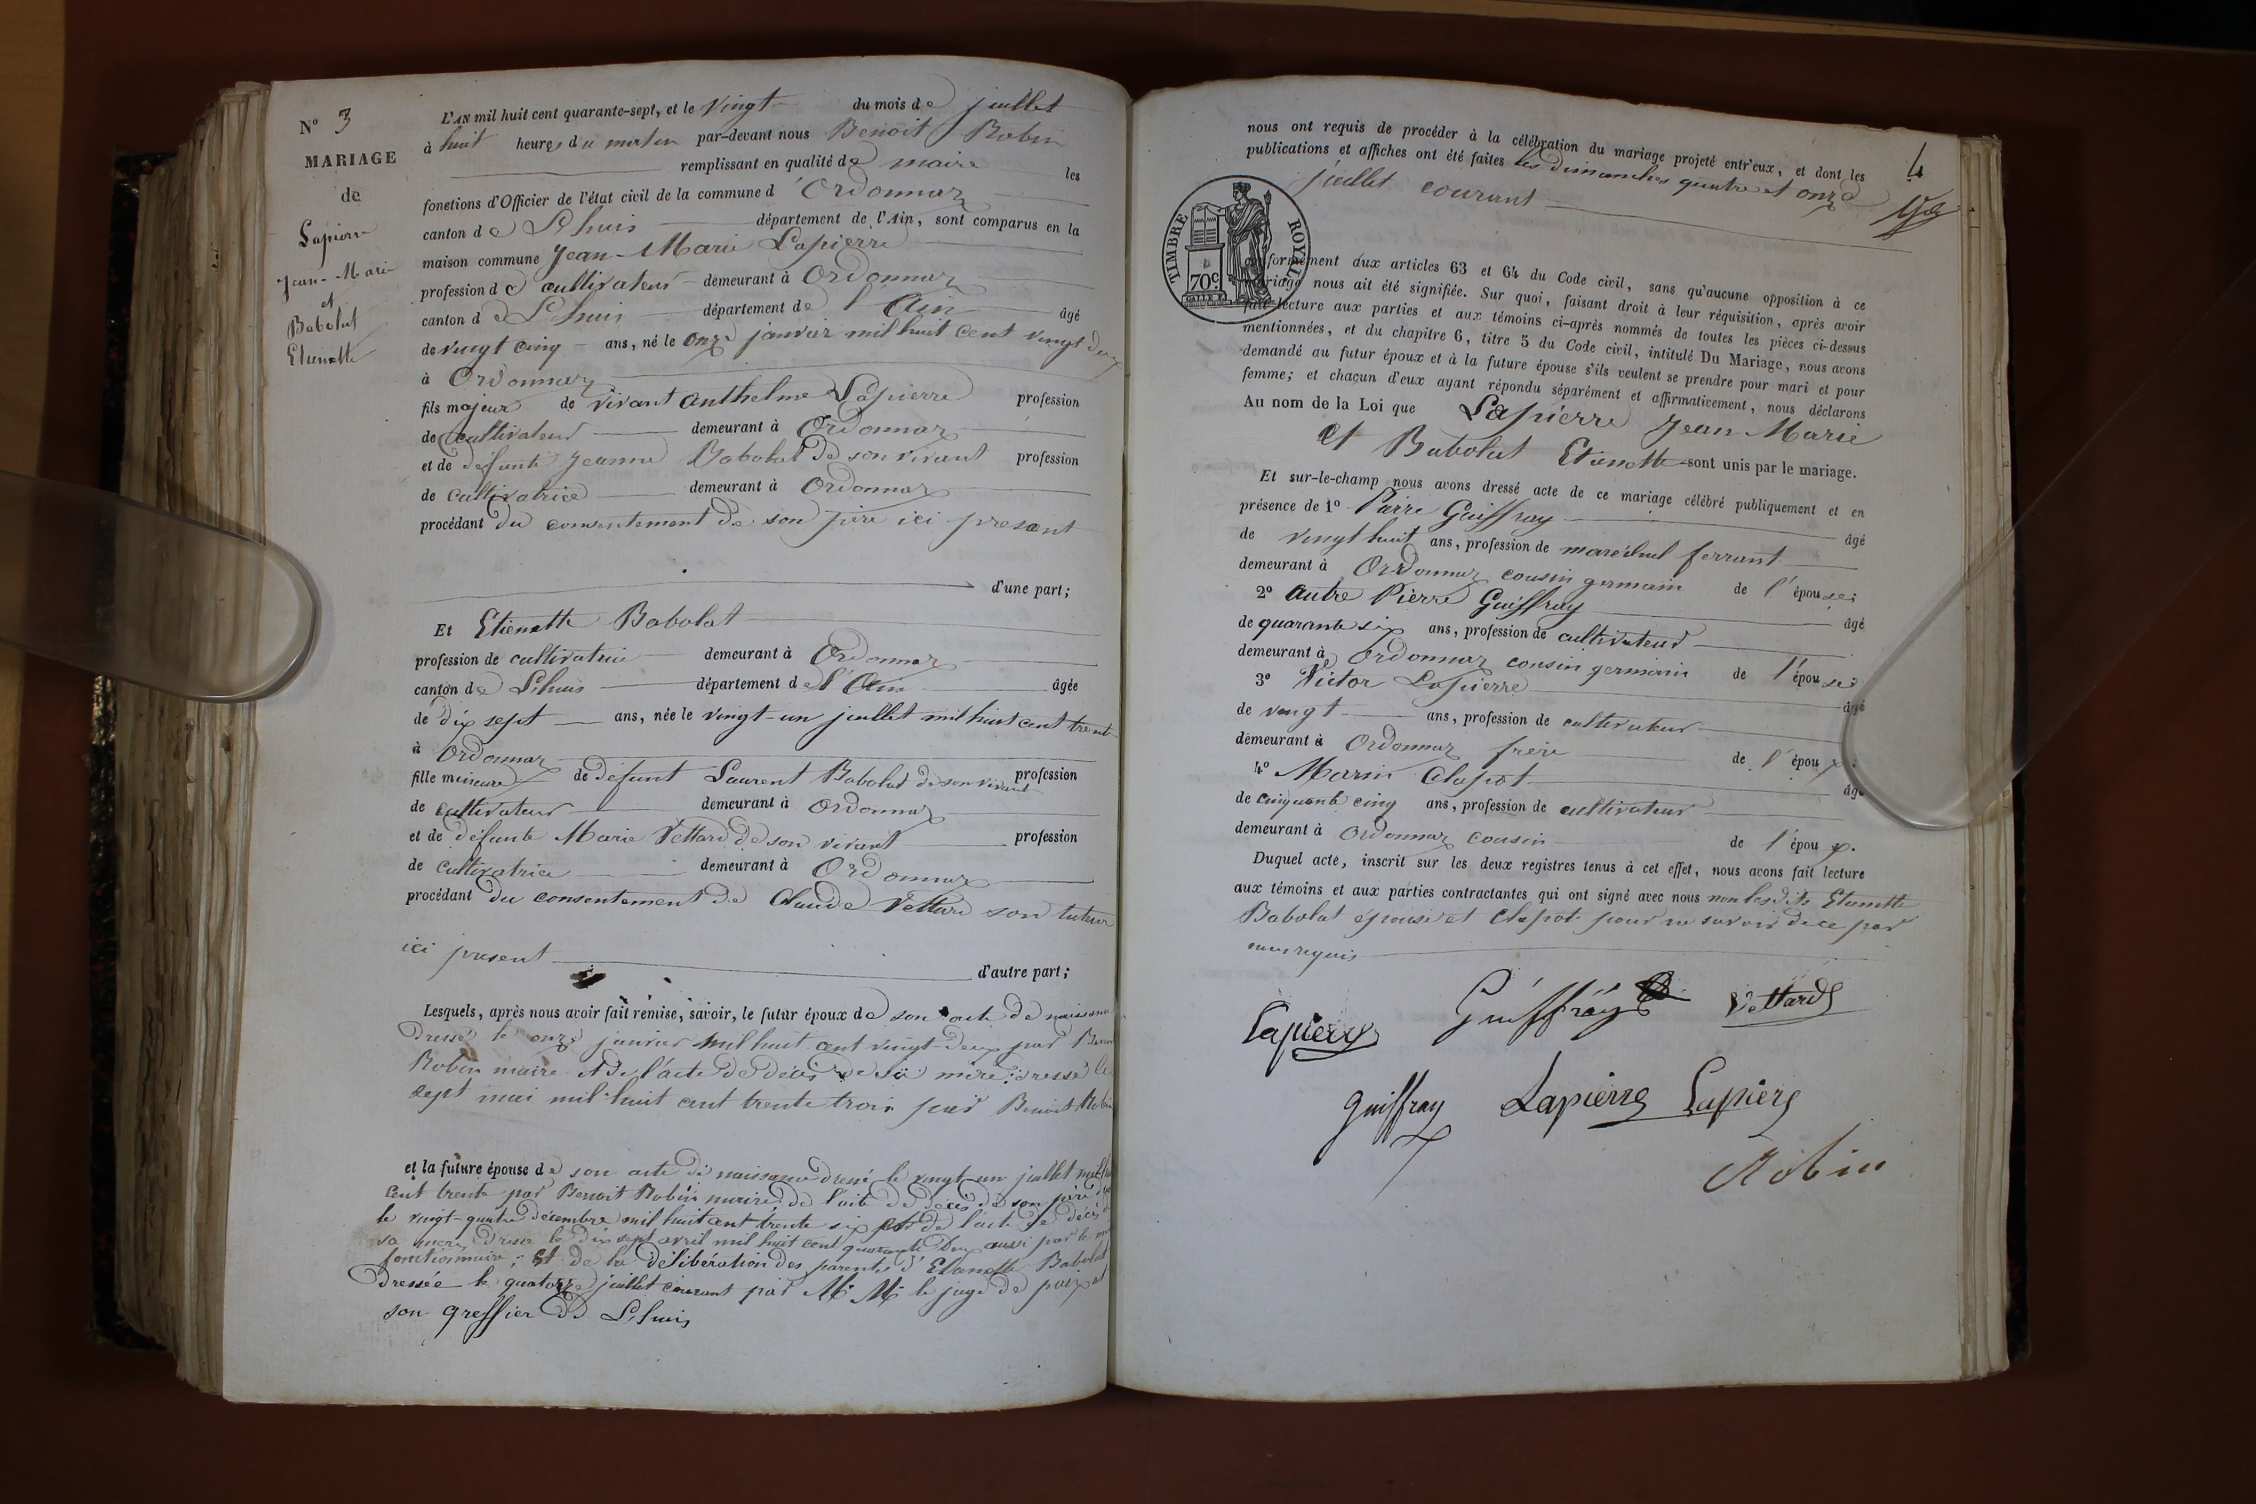 N° 3
MARIAGE
de
Lapierre
Jean-Marie
et
Babolat
Etienette
L'AN mil huit cent quarante-sept, et le vingt du mois de juillet
à huit heures du matin par-devant nous Benoit Robin
remplissant en qualité de maire les
fonctions d'Officier de l'état civil de la commune d'Ordonnaz
canton de Lhuis département de l'Ain, sont comparus en la
maison commune Jean-Marie Lapierre
profession de cultivateur demeurant à Ordonnaz
canton de Lhuis département de l'Ain âgé
de vingt cinq ans, né le onze janvier mil huit cent vingt deux
à Ordonnaz
fils majeur de vivant Anthelme Lapierre profession
de cultivateur demeurant à Ordonnaz
et de defunte Jeanne Babolat de son vivant profession
de cultivatrice demeurant à Ordonnaz
procédant du consentement de son père ici present
d'une part;
Et Etienette Babolat
profession de cultivatrice demeurant à Ordonnaz
canton de Lhuis département de l'Ain âgée
de dix sept ans, née le vingt-un juillet mil huit cent trente
à Ordonnaz
fille mineure de défunt Laurent Babolat de son vivant profession
de cultivateur demeurant à Ordonnaz
et de défunte Marie Vettard de son vivant profession
de cultivatrice demeurant à Ordonnaz
procédant du consentement de Claude Vettard son tuteur
ici present
d'autre part;
Lesquels, après nous avoir fait remise, savoir, le futur époux de son acte de naissance
dressé le onze janvier mil huit cent vingt-deux par Benoit
Robin maire et de l'acte de décès de sa mère dressé le
sept mai mil huit cent trente trois par Benoit Robin
et la future épouse de son acte de naissance dressé le vingt-un juillet mil huit
cent trente par Benoit Robin maire, de l'acte de décès de son père
le vingt-quatre décembre mil huit cent trente six et de l'acte de décès de
sa mère dressé le dix sept avril mil huit cent quarante deux aussi par le même
fonctionnaire; et de la délibération des parents d'Etienette Babolat
dressée le quatorze juillet courant par Mr Mr le juge de paix et
son greffier de Lhuis
4
TIMBRE ROYAL
70c
nous ont requis de procéder à la célébration du mariage projeté entr'eux, et dont les
publications et affiches ont été faites les dimanches quatre et onze
juillet courant
conformément aux articles 63 et 64 du Code civil, sans qu'aucune opposition à ce
mariage nous ait été signifiée. Sur quoi, faisant droit à leur réquisition, après avoir
fait lecture aux parties et aux témoins ci-après nommés de toutes les pièces ci-dessus
mentionnées, et du chapitre 6, titre 5 du Code civil, intitulé Du Mariage, nous avons
demandé au futur époux et à la future épouse s'ils veulent se prendre pour mari et pour
femme; et chacun d'eux ayant répondu séparément et affirmativement, nous déclarons
Au nom de la Loi que Lapierre Jean Marie
et Babolat Etienette sont unis par le mariage.
Et sur-le-champ nous avons dressé acte de ce mariage célébré publiquement et en
présence de 1° Pierre Guiffray âgé
de vingt huit ans, profession de maréchal ferrant
demeurant à Ordonnaz cousin germain de l'épouse;
2° autre Pierre Guiffray âgé
de quarante six ans, profession de cultivateur
demeurant à Ordonnaz cousin germain de l'épouse
3° Victor Lapierre âgé
de vingt ans, profession de cultivateur
demeurant à Ordonnaz frère de l'époux;
4° Marin Clapot âgé
de cinquante cinq ans, profession de cultivateur
demeurant à Ordonnaz cousin de l'époux.
Duquel acte, inscrit sur les deux registres tenus à cet effet, nous avons fait lecture
aux témoins et aux parties contractantes qui ont signé avec nous non lesdits Etienette
Babolat épouse et Clapot pour ne savoir de ce par
nous requis
Lapierre Guiffray Vettard
Guiffray Lapierre Lapierre
Robin